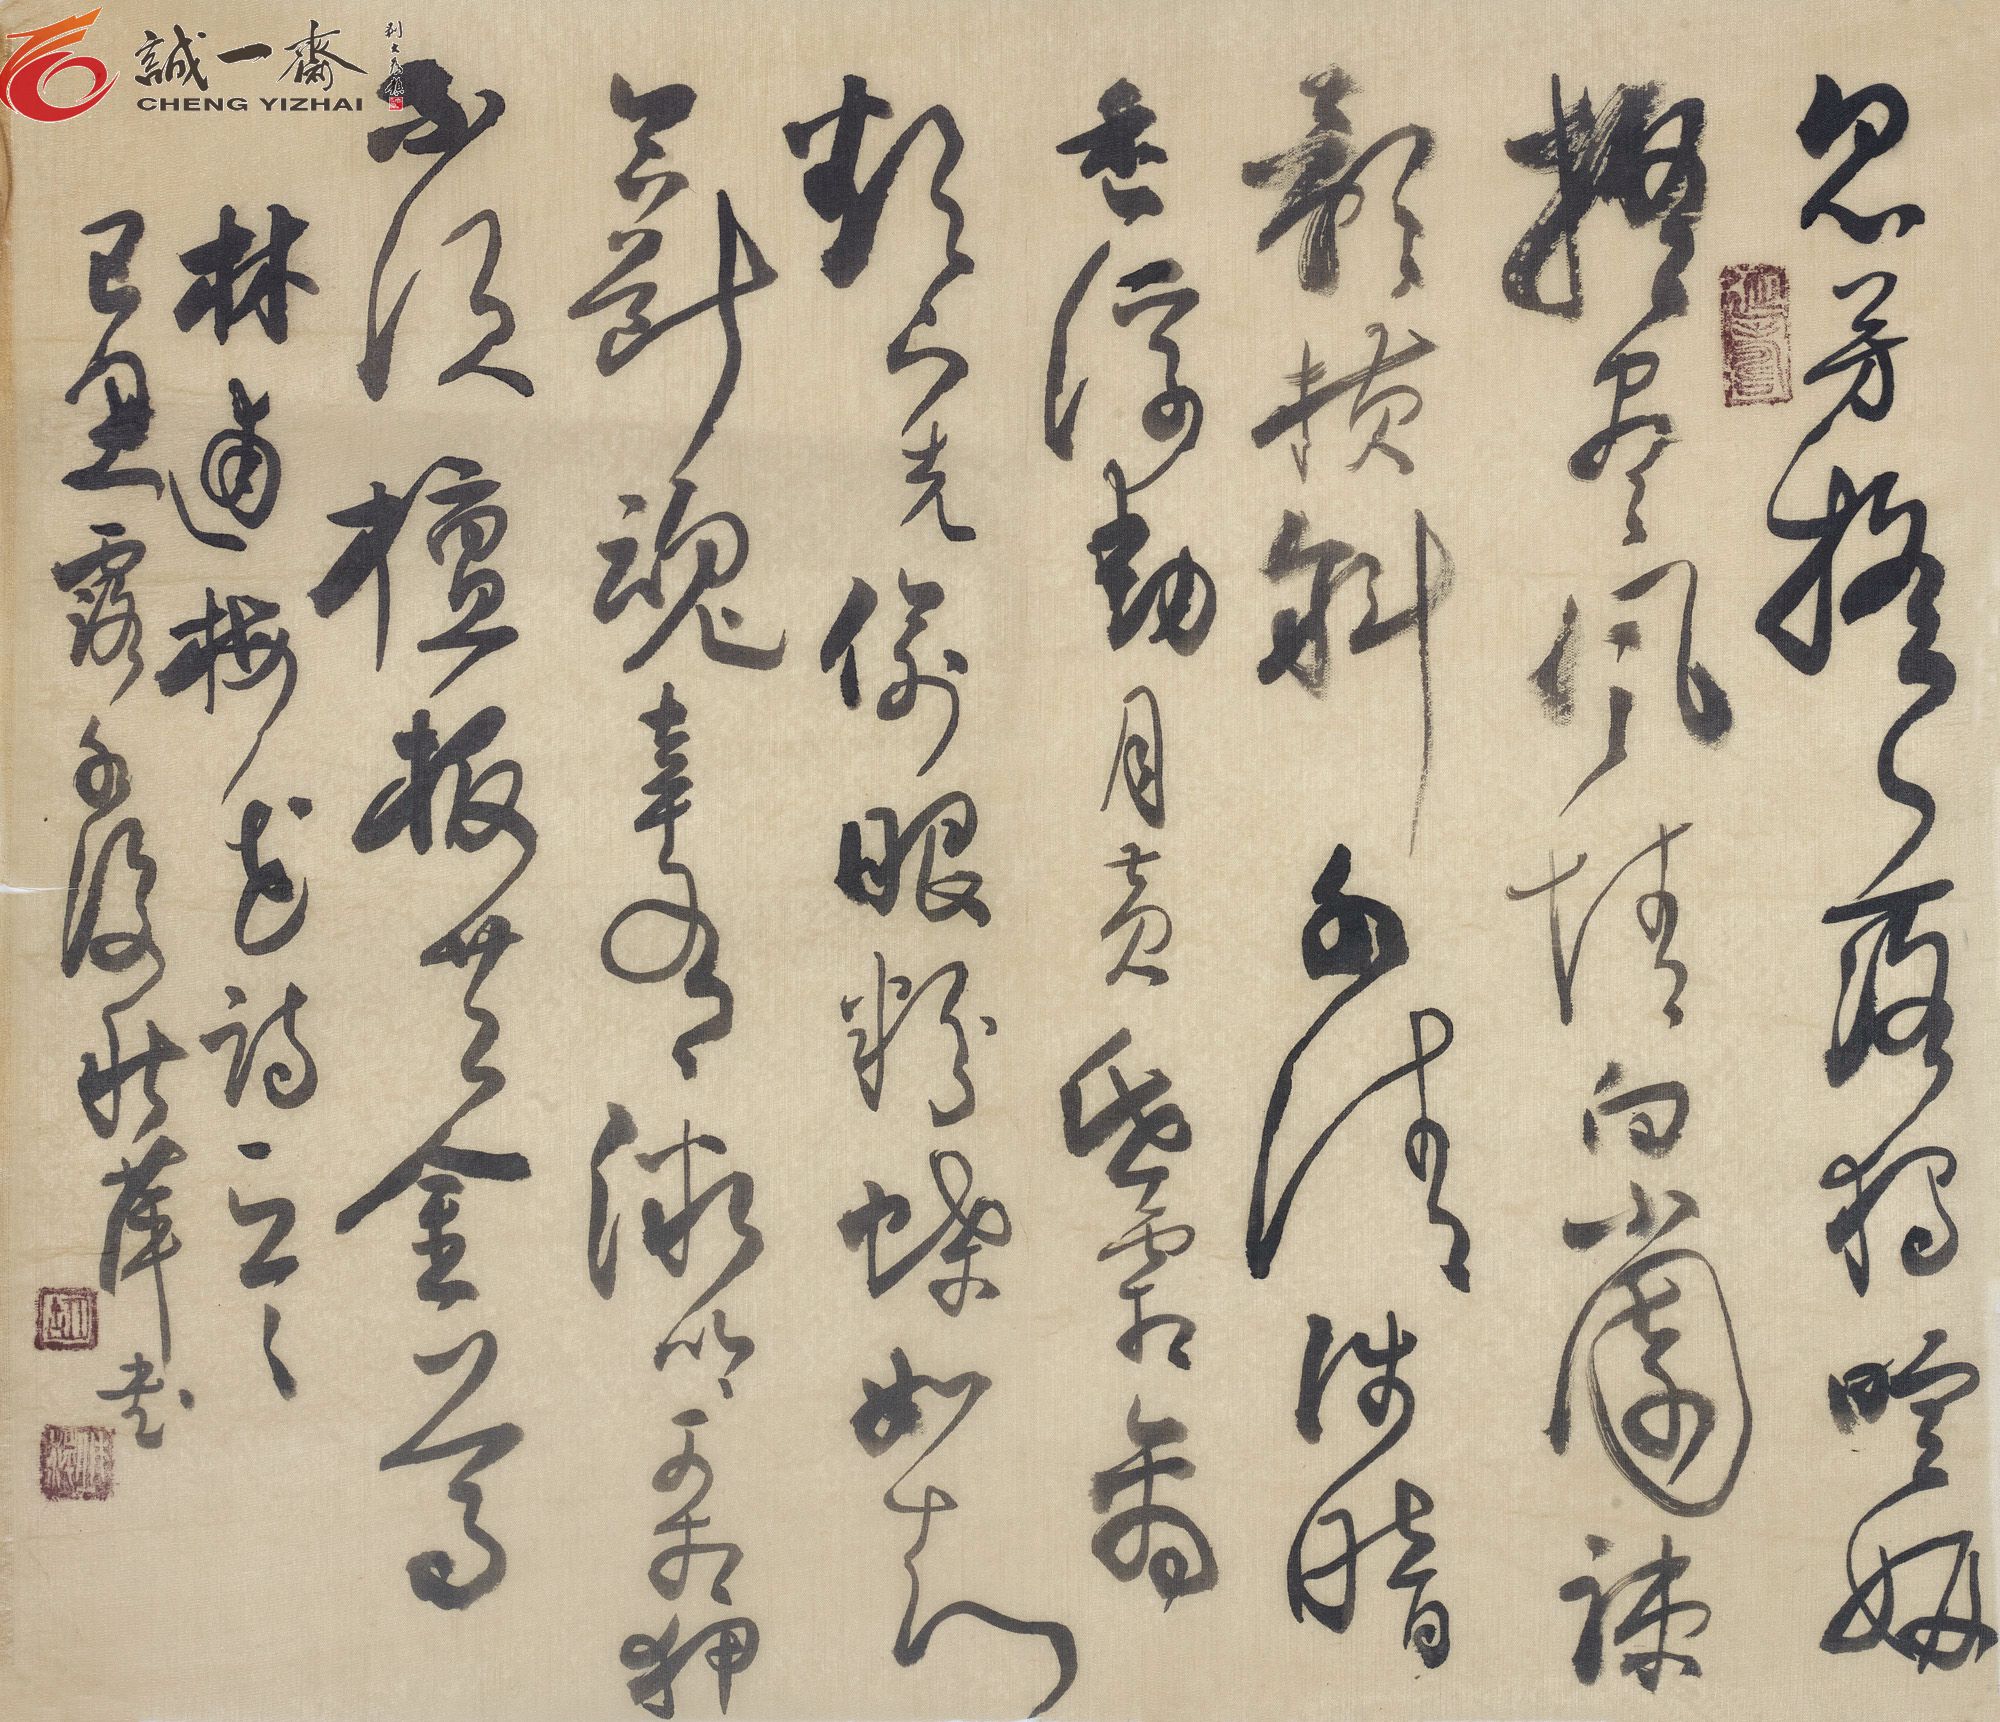 誠一齋
CHENG YIZHAI
众芳摇落独暄妍
尽风情向小園疎
影横斜水清浅暗
香浮動月黄昏霜禽
欲下先偷眼粉蝶如知
合断魂幸有微吟可相狎
不须檀板共金尊
林逋梅花诗
己丑露後秋萍书